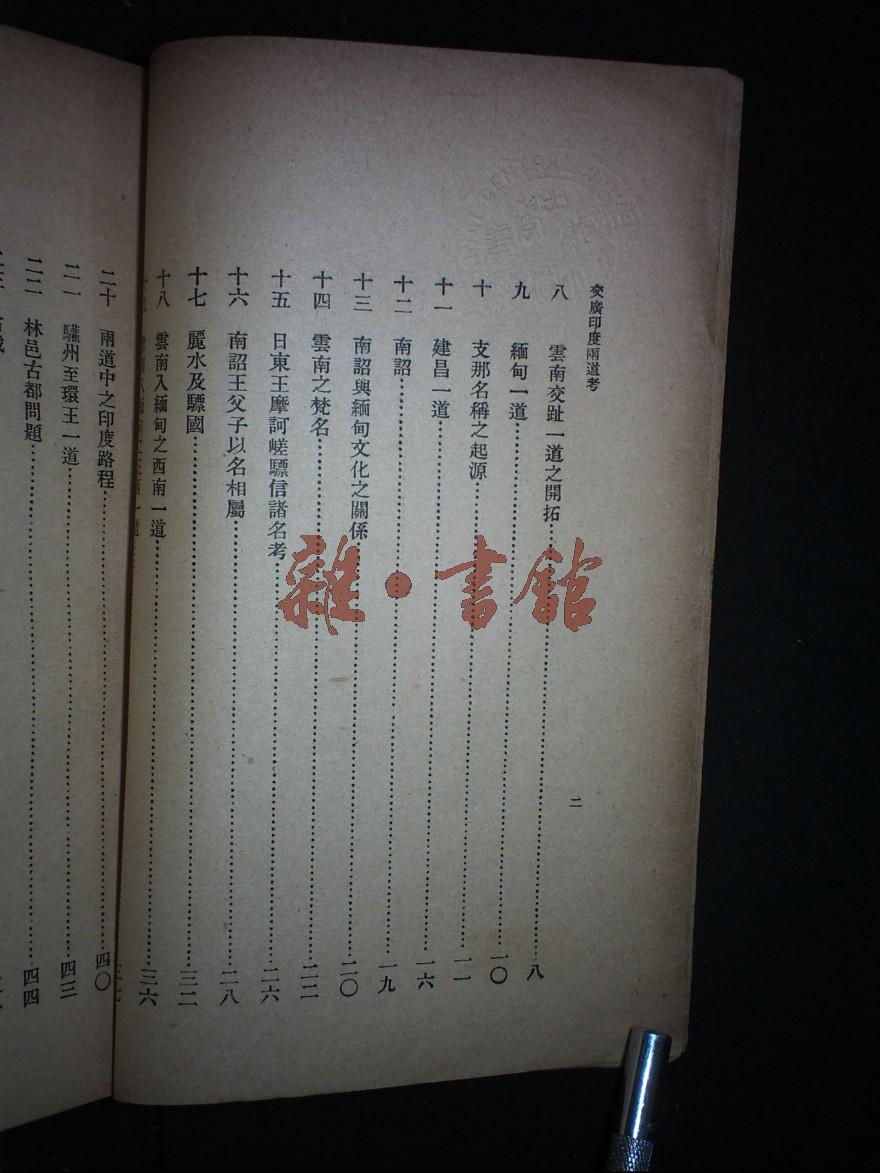 交廣印度兩道考
二
八 雲南交趾一道之開拓……八
九 緬甸一道……一〇
十 支那名稱之起源……一一
十一 建昌一道……一六
十二 南詔……一九
十三 南詔與緬甸文化之關係……二〇
十四 雲南之梵名……二二
十五 日東王摩訶嵯驃信諸名考……二六
十六 南詔王父子以名相屬……二八
十七 麗水及驃國……三二
十八 雲南入緬甸之西南一道……三六
二十 兩道中之印度路程……四〇
二一 驩州至環王一道……四三
二二 林邑古都問題……四四
雜·書館
CENTRAL